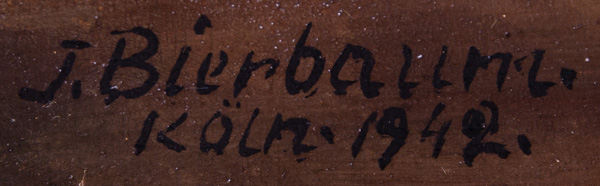 J. Bierbaum.
Köln. 1942.